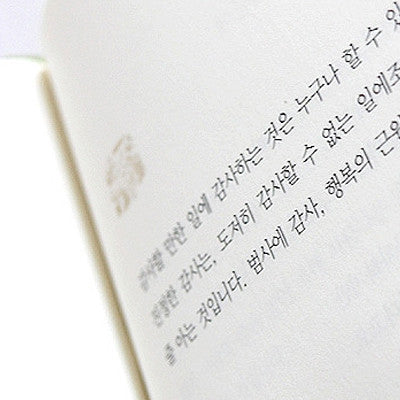 감사할 만한 일에 감사하는 것은 누구나 할 수 있
진정한 감사는, 도저히 감사할 수 없는 일에조
줄 아는 것입니다. 범사에 감사, 행복의 근원